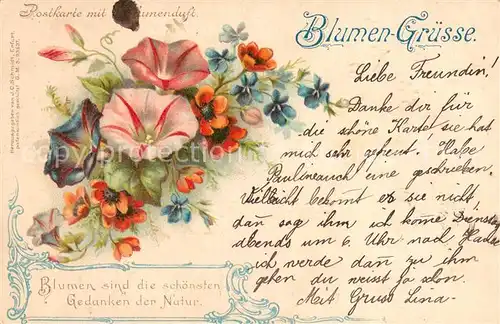 Postkarte mit Blumenduft.
Blumen-Grüsse.
Herausgegeben von J. C. Schmidt, Erfurt.
Liebe Freundin!
Danke dir für
die schöne Karte sie hat
mich sehr gefreut. Habe
Pauline auch eine geschrieben.
Vielleicht bekomt es sie nicht
dan sag ihm ich kome Dienstag
abends um 6 Uhr nach Hause
ich werde dan zu ihm
gehen du weisst ja schon.
Mit Gruss Lina.
Blumen sind die schönsten
Gedanken der Natur.